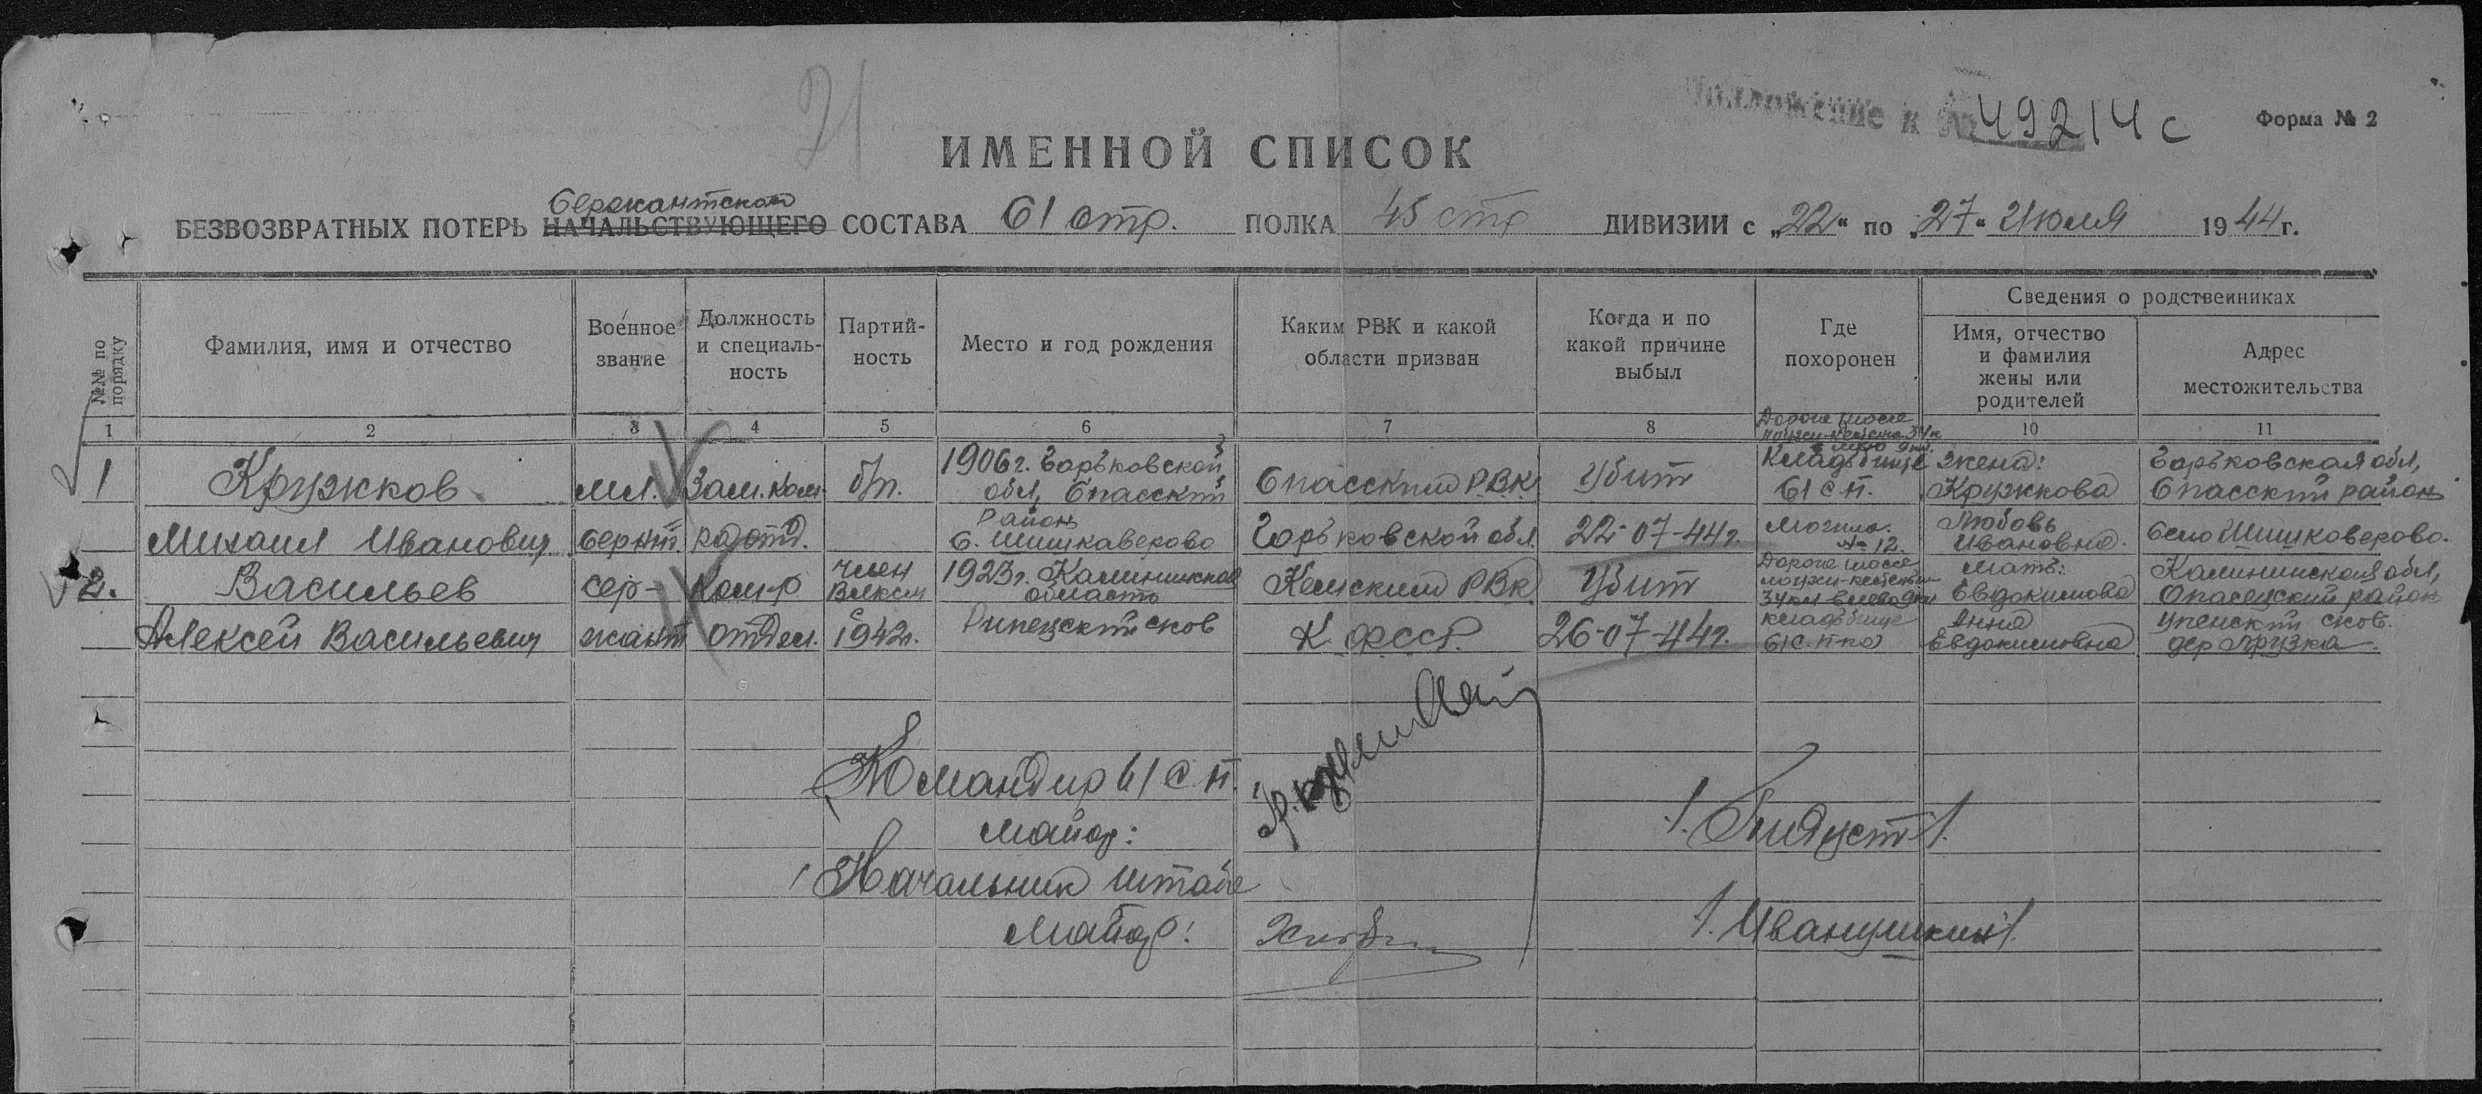 21
Приложение к № 49214с
Форма № 2
ИМЕННОЙ СПИСОК
Сержантского
БЕЗВОЗВРАТНЫХ ПОТЕРЬ НАЧАЛЬСТВУЮЩЕГО СОСТАВА 61 стр. ПОЛКА 45 стр ДИВИЗИИ с „22“ по „27“ Июля 1944 г.
№№ по порядку
Фамилия, имя и отчество
Военное звание
Должность и специальность
Партийность
Место и год рождения
Каким РВК и какой области призван
Когда и по какой причине выбыл
Где похоронен
Сведения о родственниках
Имя, отчество и фамилия жены или родителей
Адрес местожительства
1 2 3 4 5 6 7 8 10 11
1 Кружков Михаил Иванович
мл. сержт
Зам. ком. отд.
б/п.
1906 г. Горьковской обл, Спасский район с. Шишкаверово
Спасским РВК Горьковской обл.
Убит 22-07-44г.
Дорога шоссе
Кладбище 61 с.п. могила. № 12.
жена: Кружкова Любовь Ивановна.
Горьковская обл, Спасский район село Шишковерово.
2. Васильев Алексей Васильевич
сержант
Ком-р отдел.
член ВЛКСМ с 1942г.
1923г. Калининской область
Кемским РВК К.ФССР.
Убит 26-07-44г.
Дорога шоссе
34 км
кладбище 61 с.п-ка
Мать: Евдокимова Анна Евдокимовна
Калининская обл,
район
дер
Командир 61 с.п.
майор:
Начальник штаба
Майор:
/.Иванушкин/.